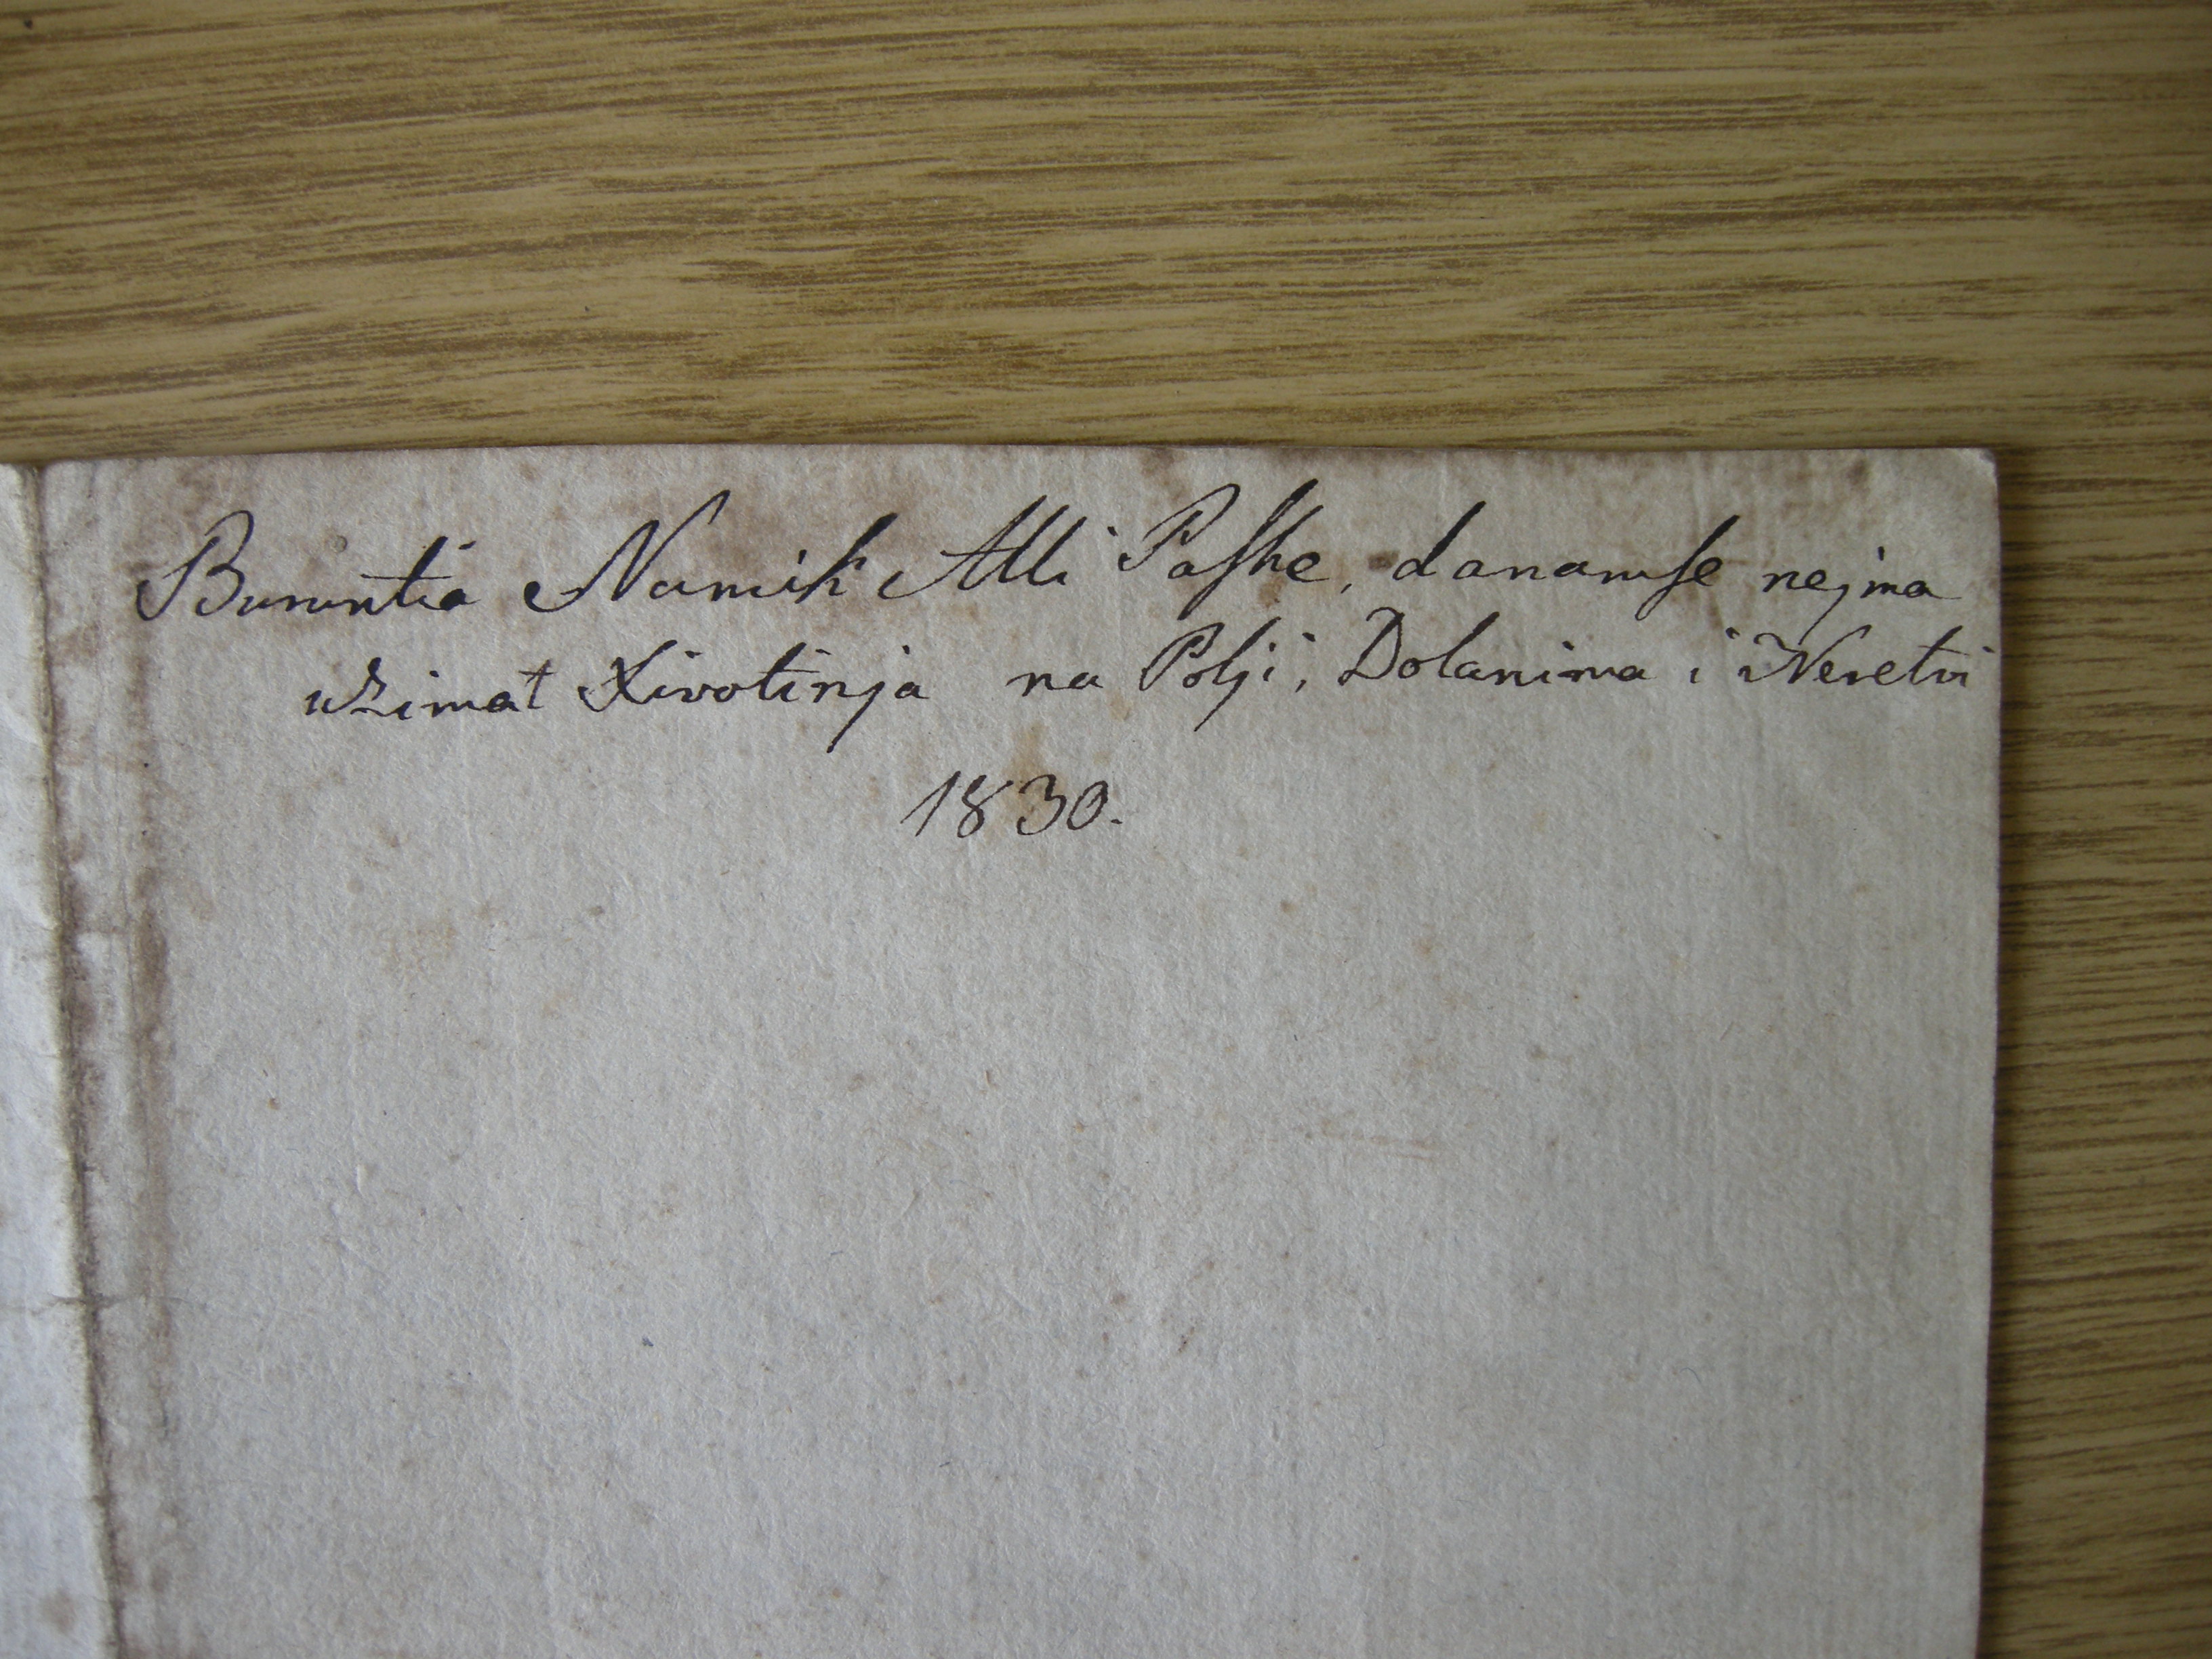 Buruntia Namik Alli Paſhe, danamſe nejma
uzimat Xivotinja na Polji, Dolanima i Neretvi
1830.